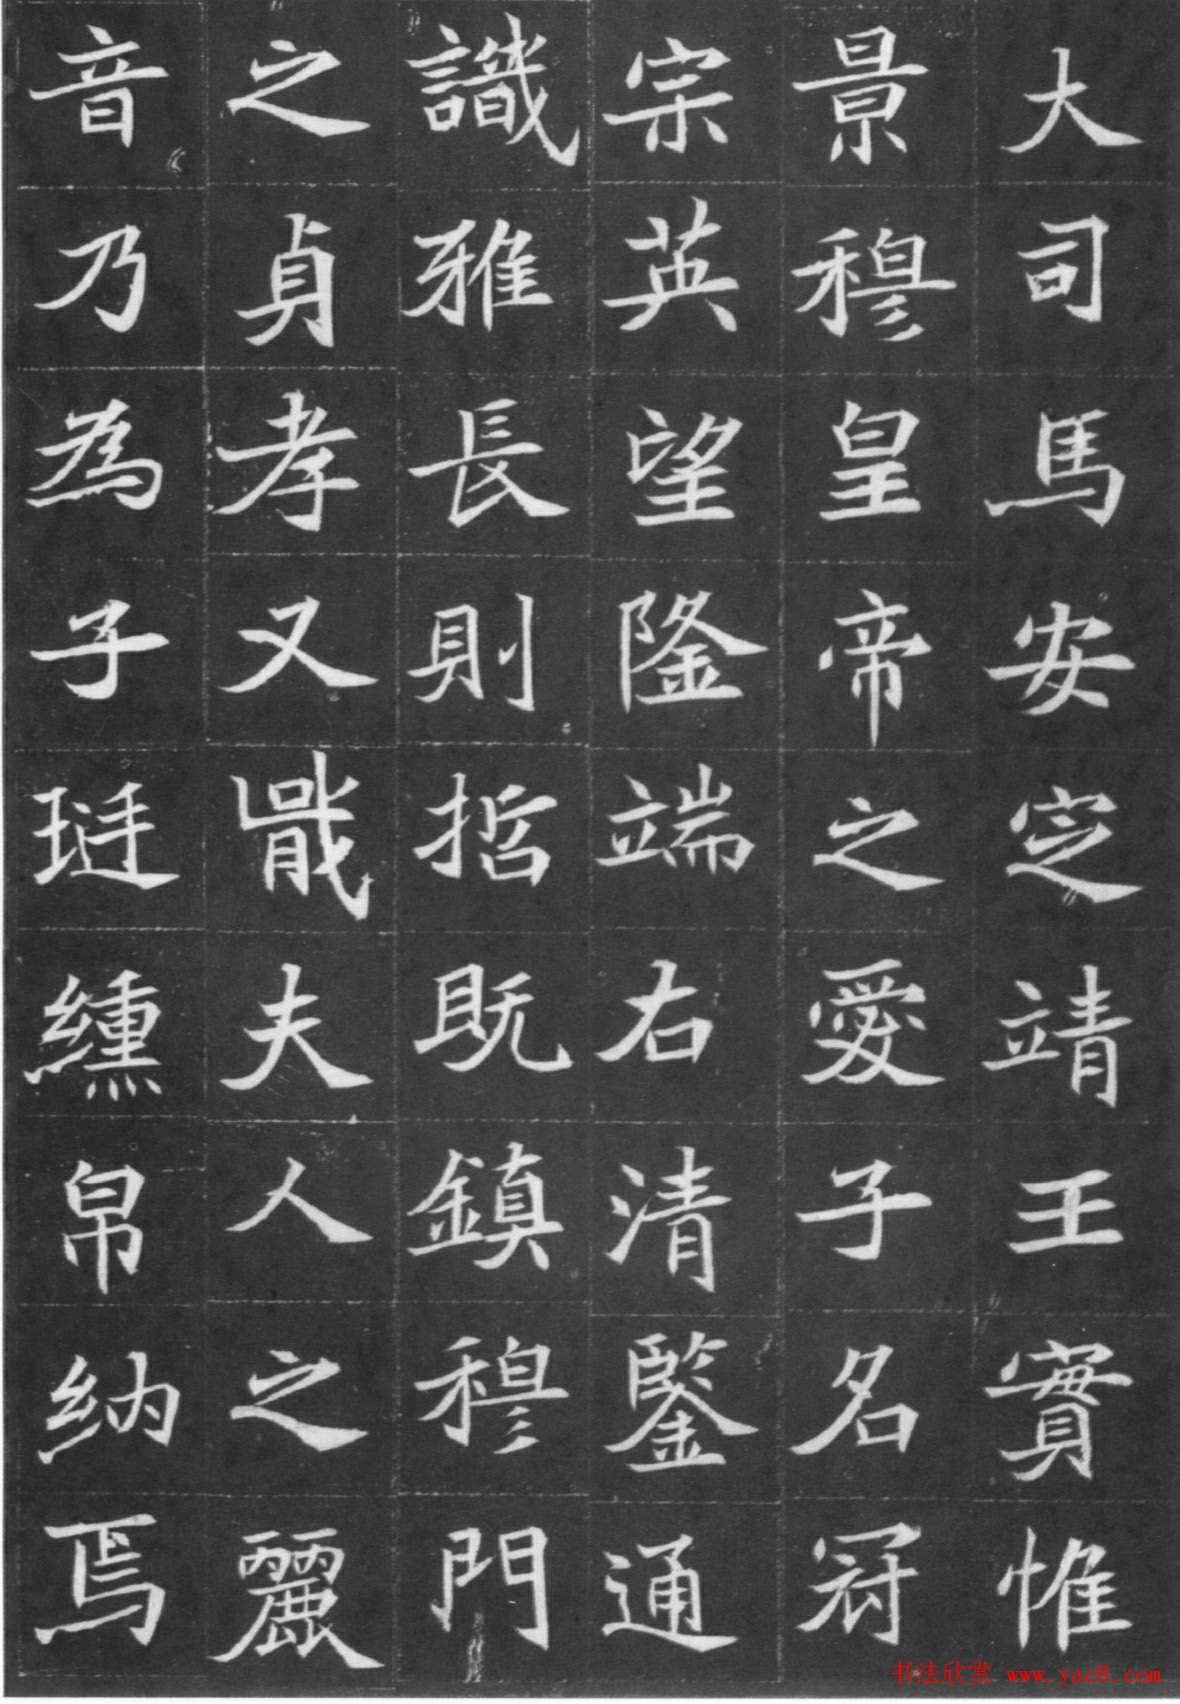 大司馬安定靖王實惟
景穆皇帝之愛子名冠
宗英望隆端右清鑒通
識雅長則哲既鎮穆門
之貞孝又戠夫人之麗
音乃為子琺纁帛納焉
书法欣赏 www.yac8.com